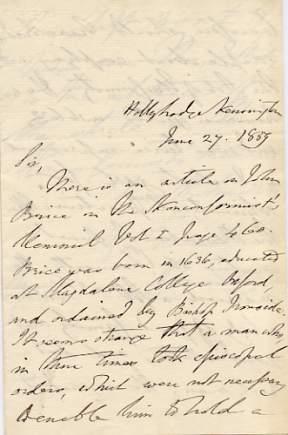 Hollybrodge Kensington
June 27. 1859
Sir,
There is an article on John
Brice in the Nonconformist's
Memorial Vol I page 460.
Brice was born in 1636, educated
at Magdalene College Oxford,
and ordained by Bishop Ironside.
It seems strange that a man who
in those times took episcopal
orders, which were not necessary
to enable him to hold a